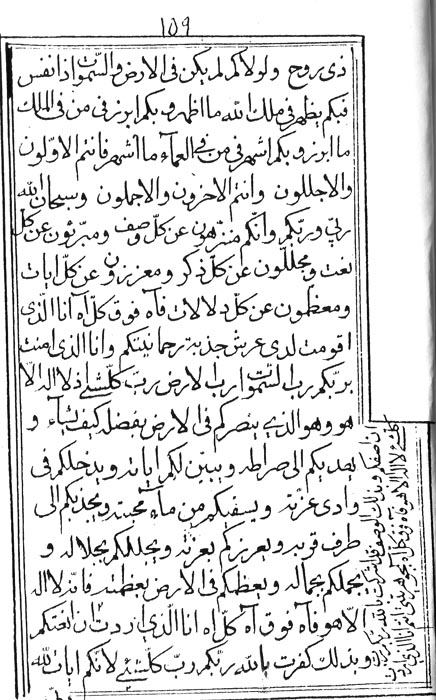 ١٥٩
ذی روح ولولاکم لم یکن فی الارض والسموات ذا نفس
فبکم یظهر فی ملک الله ما اظهر وبکم ابرز فی من فی الملک
ما ابرز وبکم اشهر فی من فی العمآء ما اشهر فانتم الاولون
والاجللون وانتم الاخرون والاجملون وسبحان الله
ربی وربکم وانکم منزهون عن کل وصف ومبرئون عن کل
نعت ومجللون عن کل ذکر ومعززون عن کل ایات
ومعظمون عن کل دلالات فآه فوق کل آه انا الذی
اقومت لدی عرش جذبیر رحمانیتکم وانا الذی امنت
بربکم رب السموات رب الارض رب کلشئ اذ لا اله الا
هو وهو الذی ینصرکم فی الارض بفضله کیف یشآء و
یهدیکم الی صراطه ویبین لکم ایاته ویدخلکم فی
وادی عزته ویسقیکم من مآء محبته ویجذبکم الی
طرف قربه ویعززکم بعزته ویجللکم بجلاله و
یجملکم بجماله ویعظمکم فی الارض بعظمته فانه لا اله
الا هو فآه فوق آه کل آه انا الذی اردت ان انعتکم
وبذلک کفرت بالله ربکم رب کلشئ لانکم ایات لله